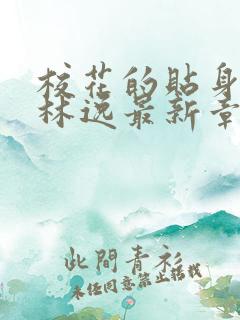 校花的贴身
林逸最新章
此間青衫
未经同意禁止搭载